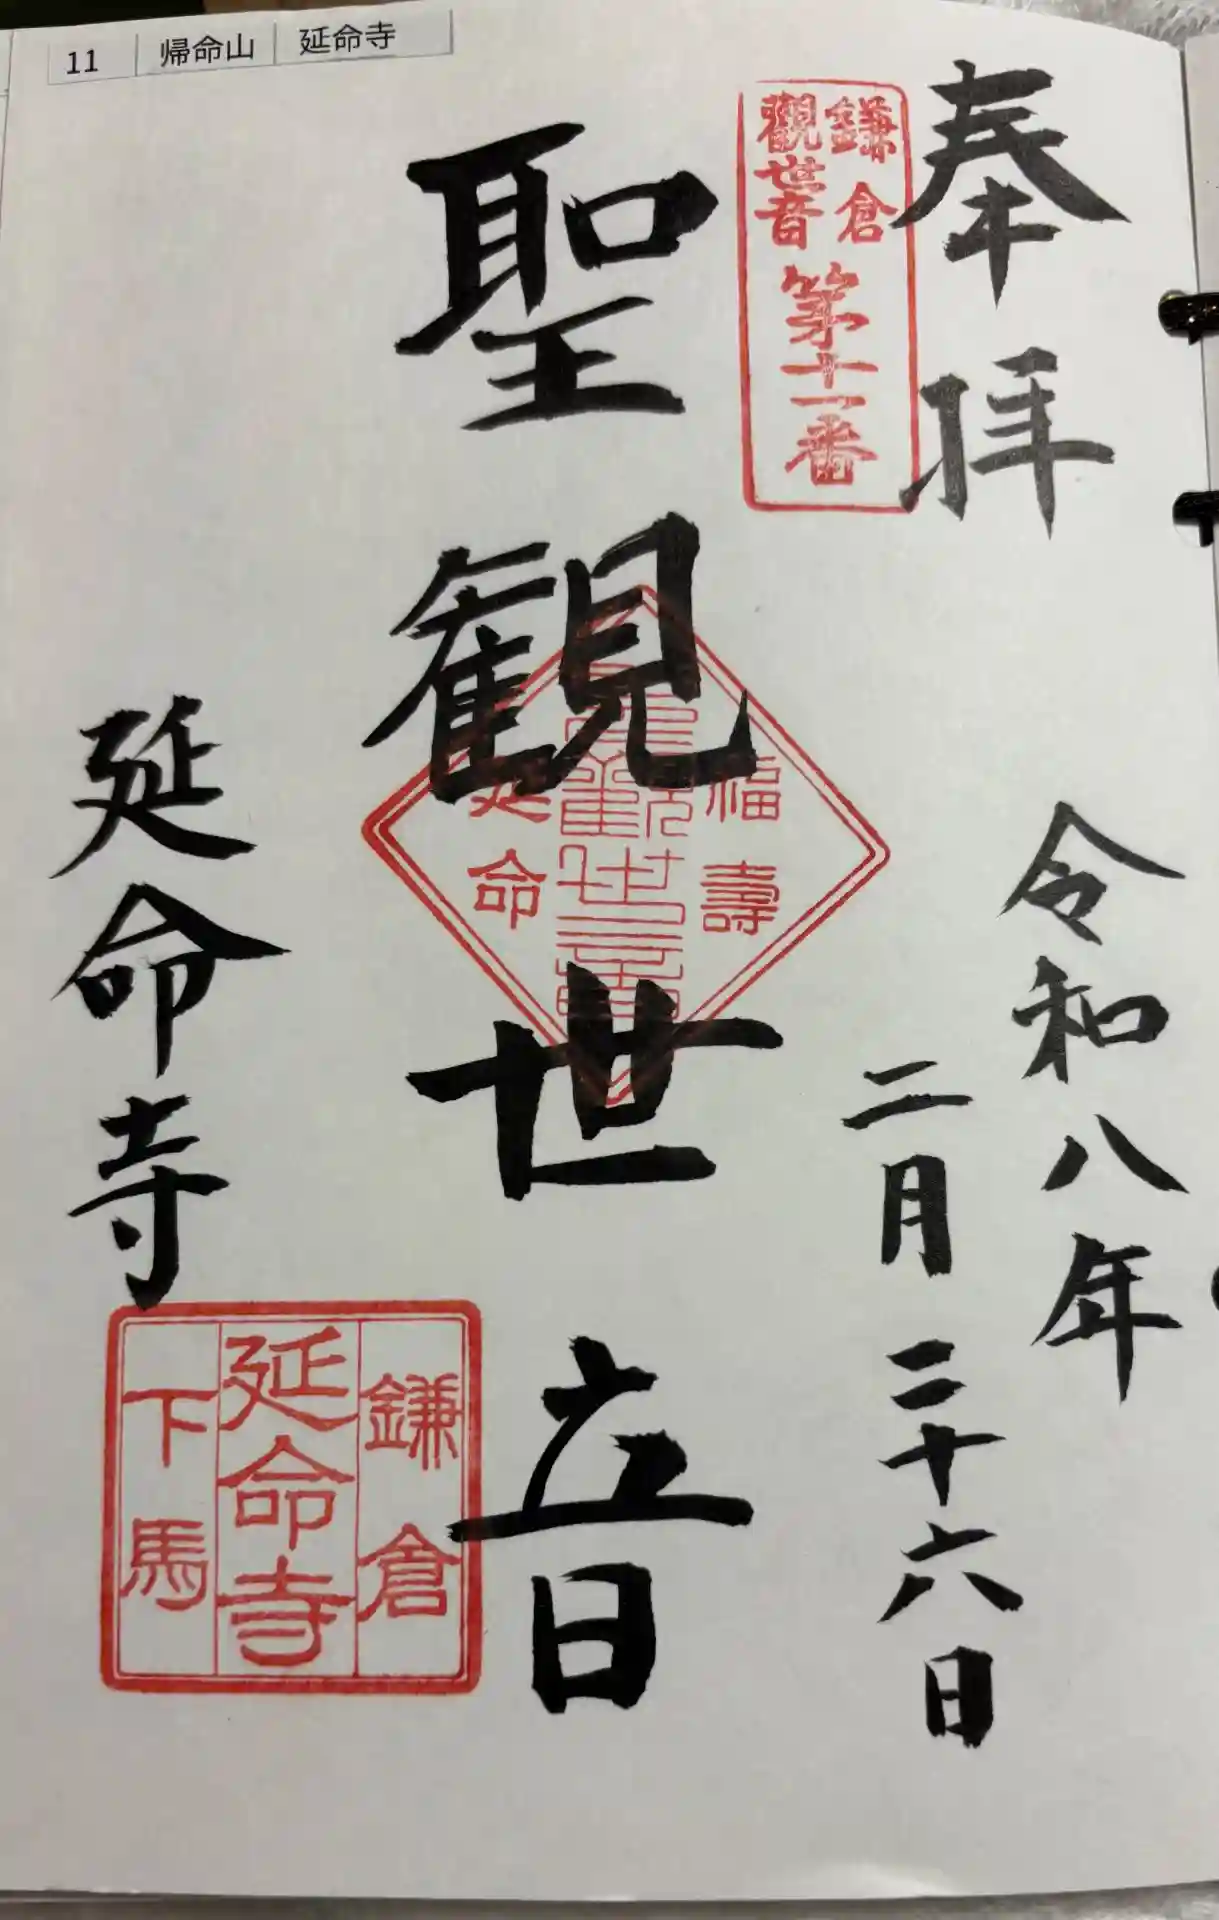 11 帰命山 延命寺
奉拝
鎌倉
觀世音
第十一番
令和八年
二月二十六日
聖観世音
福壽
聖観世音
延命
延命寺
鎌倉
延命寺
下馬